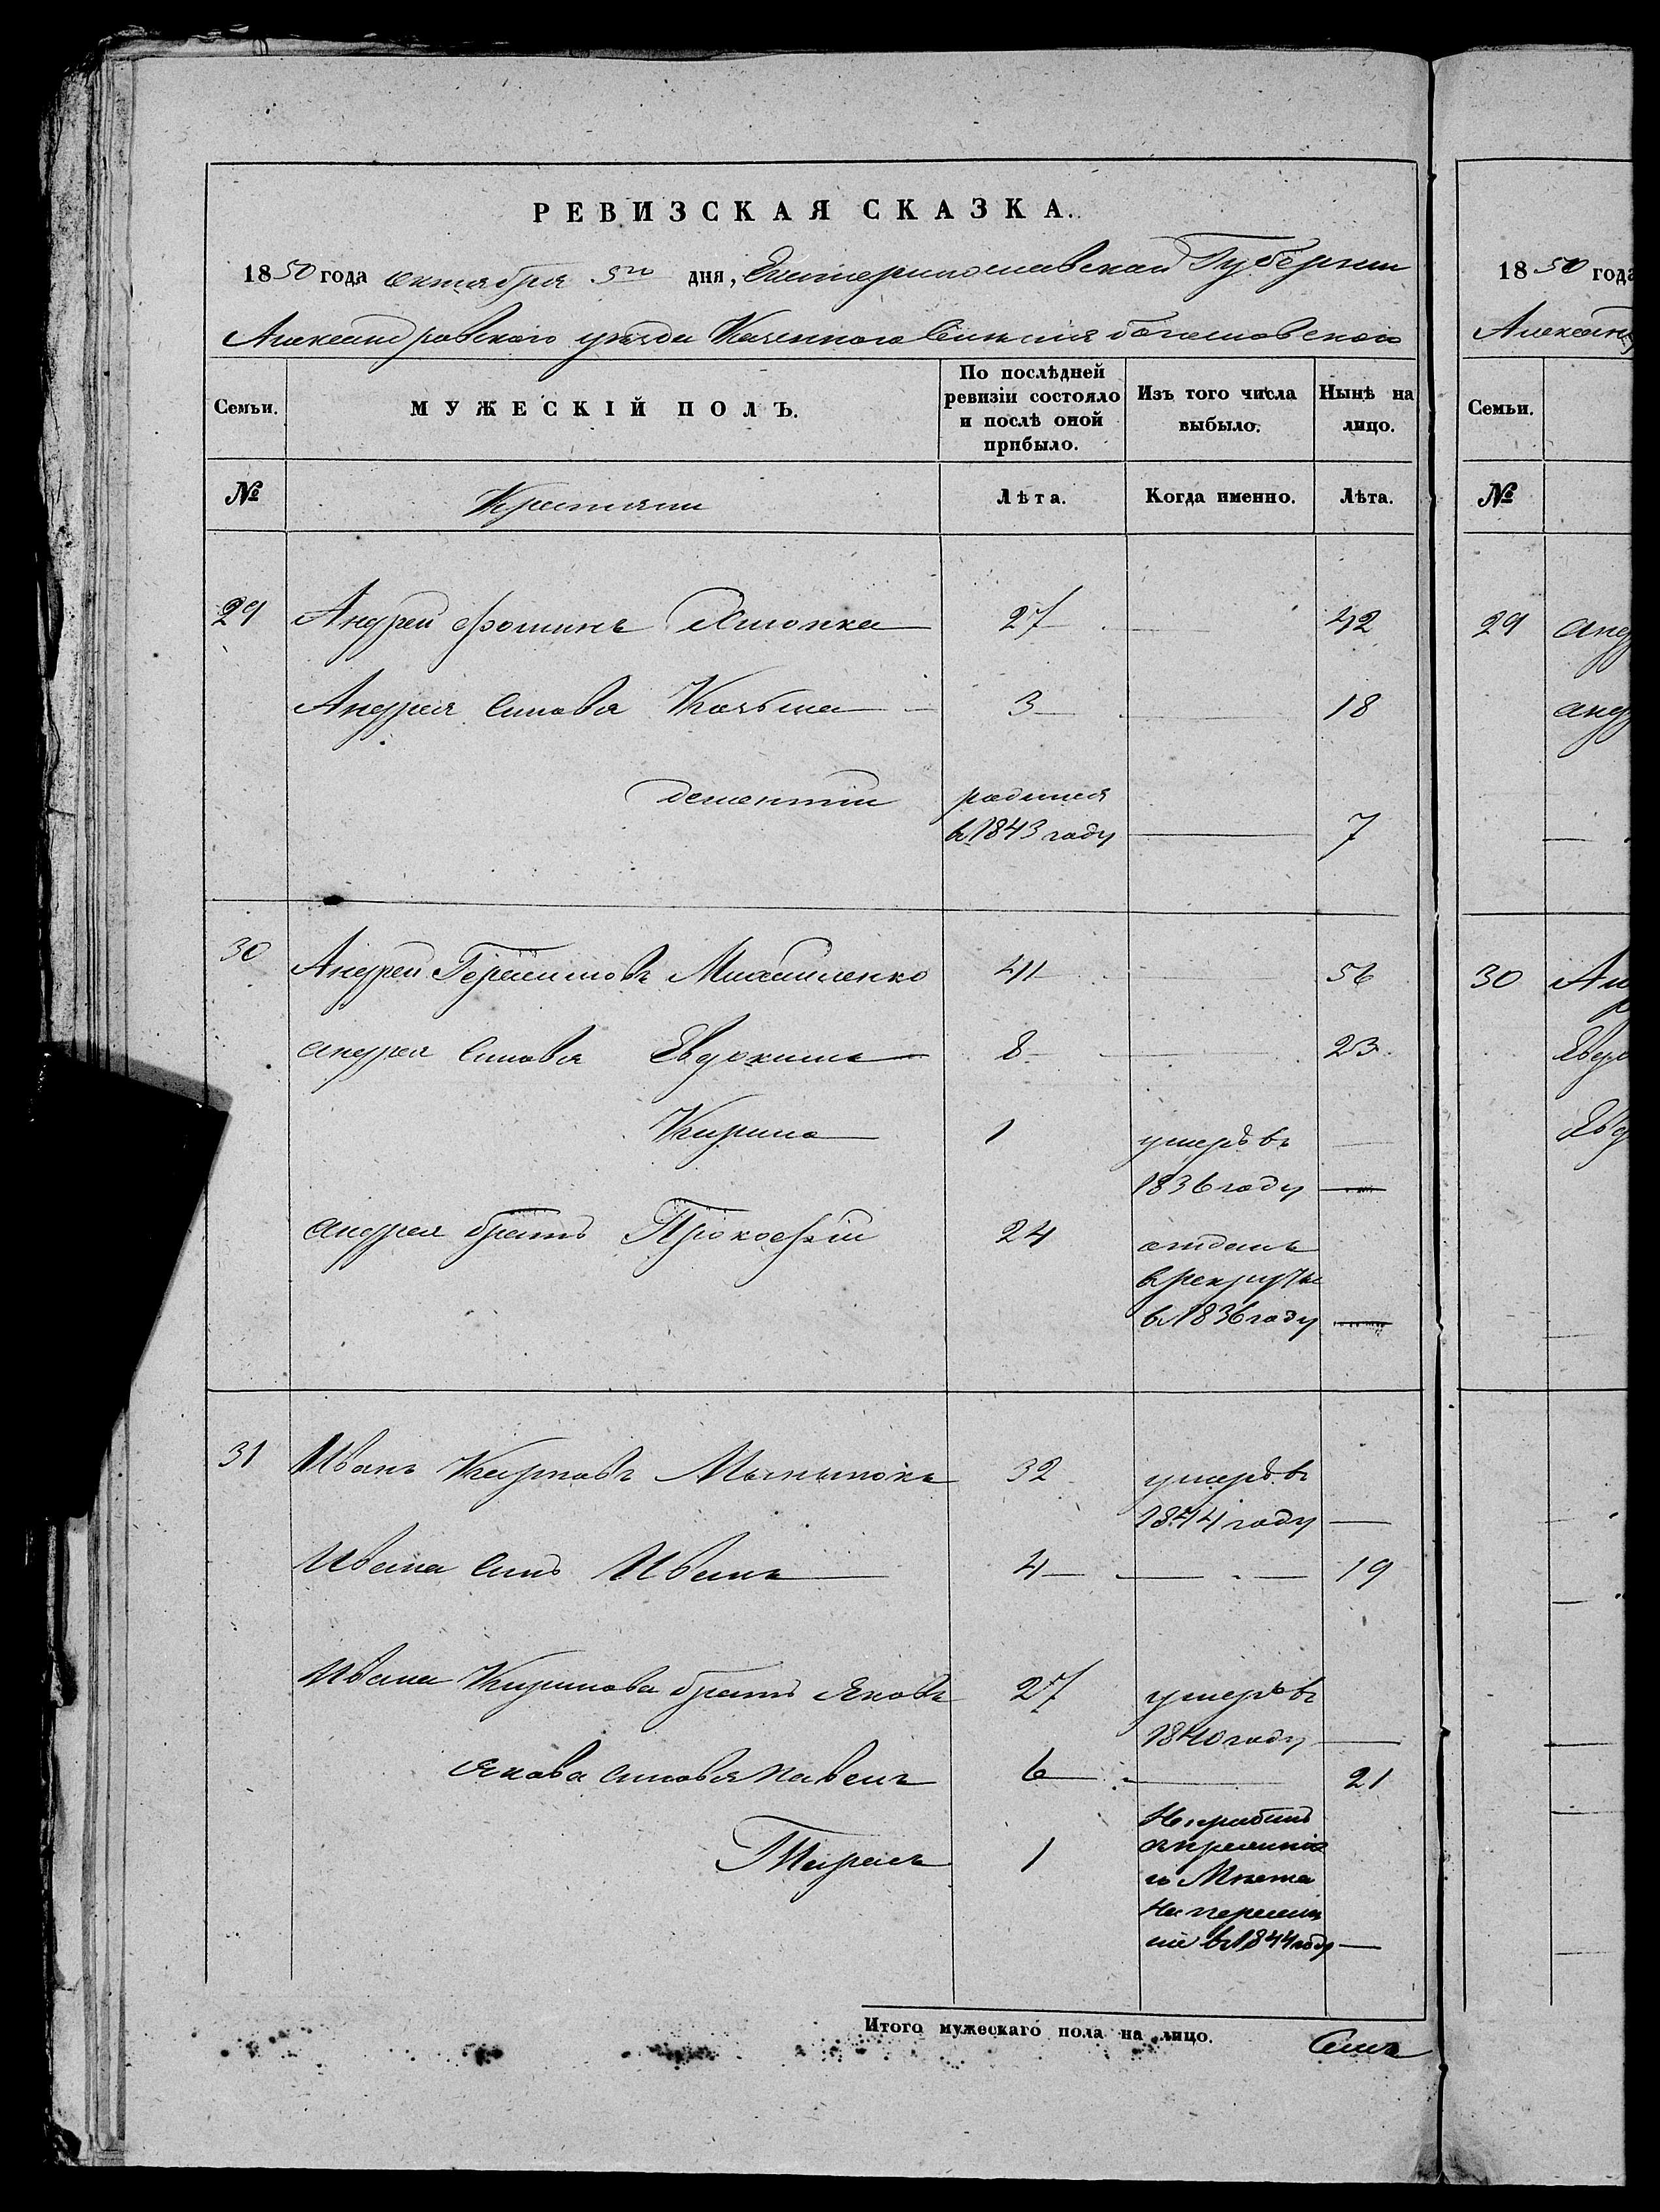 РЕВИЗСКАЯ СКАЗКА.
1850 года октября 5го дня, Екатеринославской Губернии
Александровского уезда Казенного Селения
Семьи. МУЖЕСКІЙ ПОЛЪ. По послѣдней ревизіи состояло и послѣ оной прибыло. Изъ того числа выбыло. Нынѣ на лицо.
№ Крестьяни Лѣта. Когда именно. Лѣта.
29 Андрей Фоминъ 27 42
Андрея синовя Козьма 3 18
дементий родился
в 1843 году 7
30 Андрей Герасимовъ Михайленко 41 56
андрея синовя Евдокимъ 8 23
Кирило 1 умеръ въ
1836 году
андрея братъ Прокофий 24 отданъ
в рекруты
в 1836 году
31 Иванъ Кириловъ 32 умеръ въ
1844 году
Ивана синъ Иванъ 4 19
Ивана Кирилова братъ Яковъ 27 умеръ въ
1840 году
Якова синовя Павелъ 6 21
Тарасъ 1
в 1844 году
Итого мужескаго пола на лицо. Семъ
1850 года
Семьи.
№
29
30